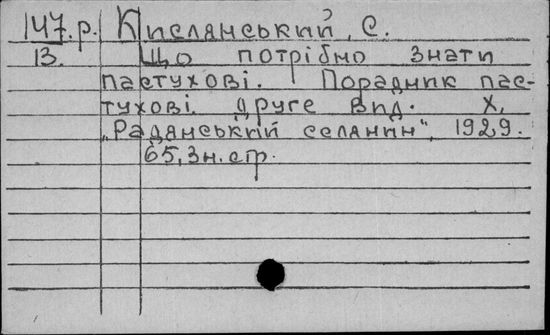 147.р. Кислянський, Є.
13. Що потрібно знати
пастухові. Порадник пас-
тухові. Друге вид. Х.
„Радянський селянин", 1929.
65,3н.стр.